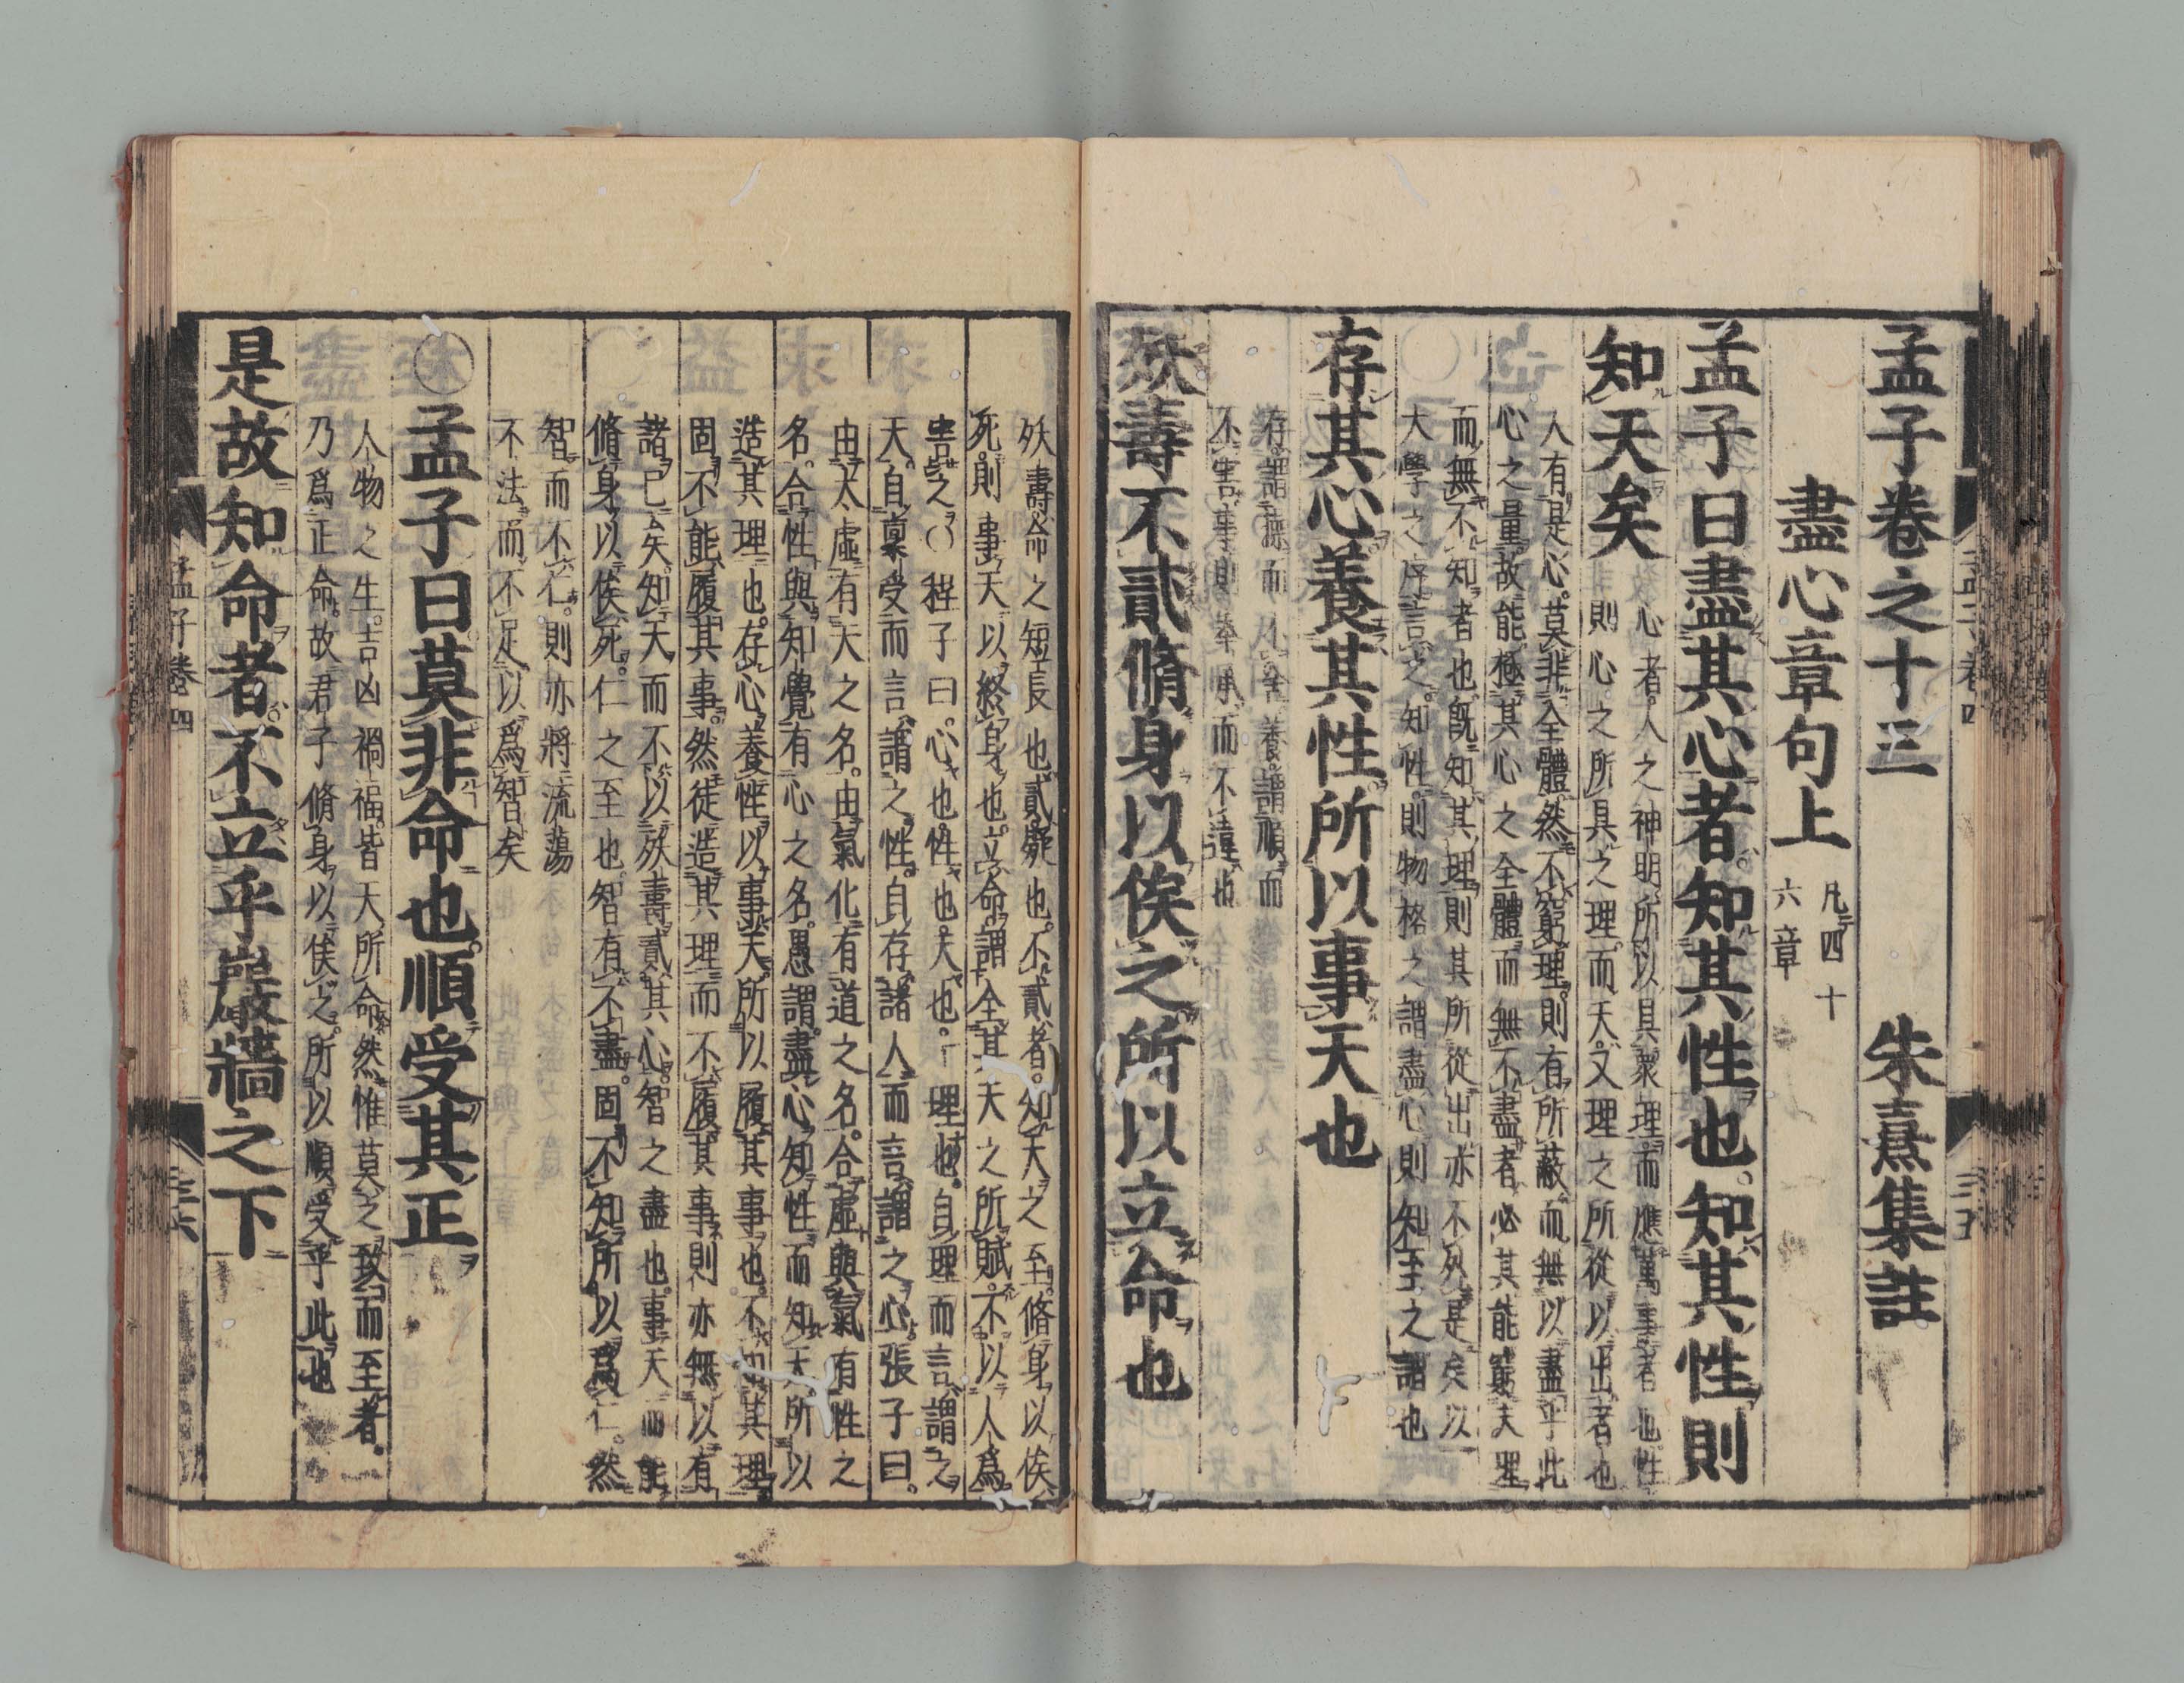 孟子卷之十三 朱熹集註
盡心章句上
凡四十
六章
孟子曰盡其心者知其性也知其性則
知天矣
心者人之神明所以具衆理而應萬事者也性
則心之所具之理而天又理之所從以出者也
人有是心莫非全體然不窮理則有所蔽而無以盡乎此
心之量故能極其心之全體而無不盡者必其能窮夫理
而無不知者也旣知其理則其所從出亦不外是矣以
大學之序言之知性則物格之謂盡心則知至之謂也
存其心養其性所以事天也
存謂操而不舍養謂順而
不害事則奉承而不違也
殀壽不貳脩身以俟之所以立命也
殀壽命之短長也貳疑也不貳者知天之至脩身以俟
死則事天以終身也立命謂全其天之所賦不以人爲
害之〇程子曰心也性也天也一理也自理而言謂之
天自稟受而言謂之性自存諸人而言謂之心張子曰
由太虛有天之名由氣化有道之名合虛與氣有性之
名合性與知覺有心之名愚謂盡心知性而知天所以
造其理也存心養性以事天所以履其事也不知其理
固不能履其事然徒造其理而不履其事則亦無以有
諸己矣知天而不以殀壽貳其心智之盡也事天而能
脩身以俟死仁之至也智有不盡固不知所以爲仁然
智而不仁則亦將流蕩
不法而不足以爲智矣
〇孟子曰莫非命也順受其正
人物之生吉凶禍福皆天所命然惟莫之致而至者
乃爲正命故君子脩身以俟之所以順受乎此也
是故知命者不立乎巖牆之下
孟子卷四
三十六